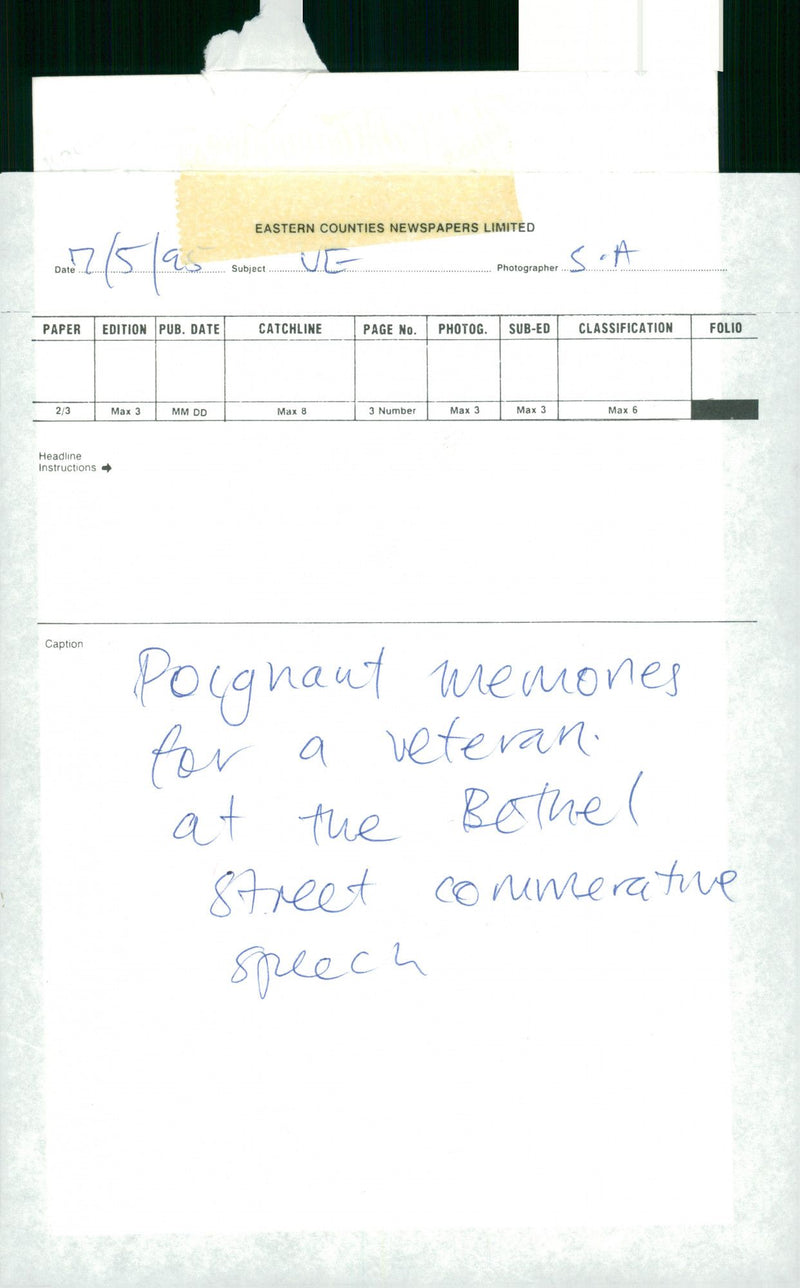 EASTERN COUNTIES NEWSPAPERS LIMITED
Date 7/5/95 Subject VE Photographer S.A
PAPER EDITION PUB. DATE CATCHLINE PAGE No. PHOTOG. SUB-ED CLASSIFICATION FOLIO
2/3 Max 3 MM DD Max 8 3 Number Max 3 Max 3 Max 6
Headline
Instructions
Caption
Poignant memories
for a veteran.
at the Bethel
street commerative
speech